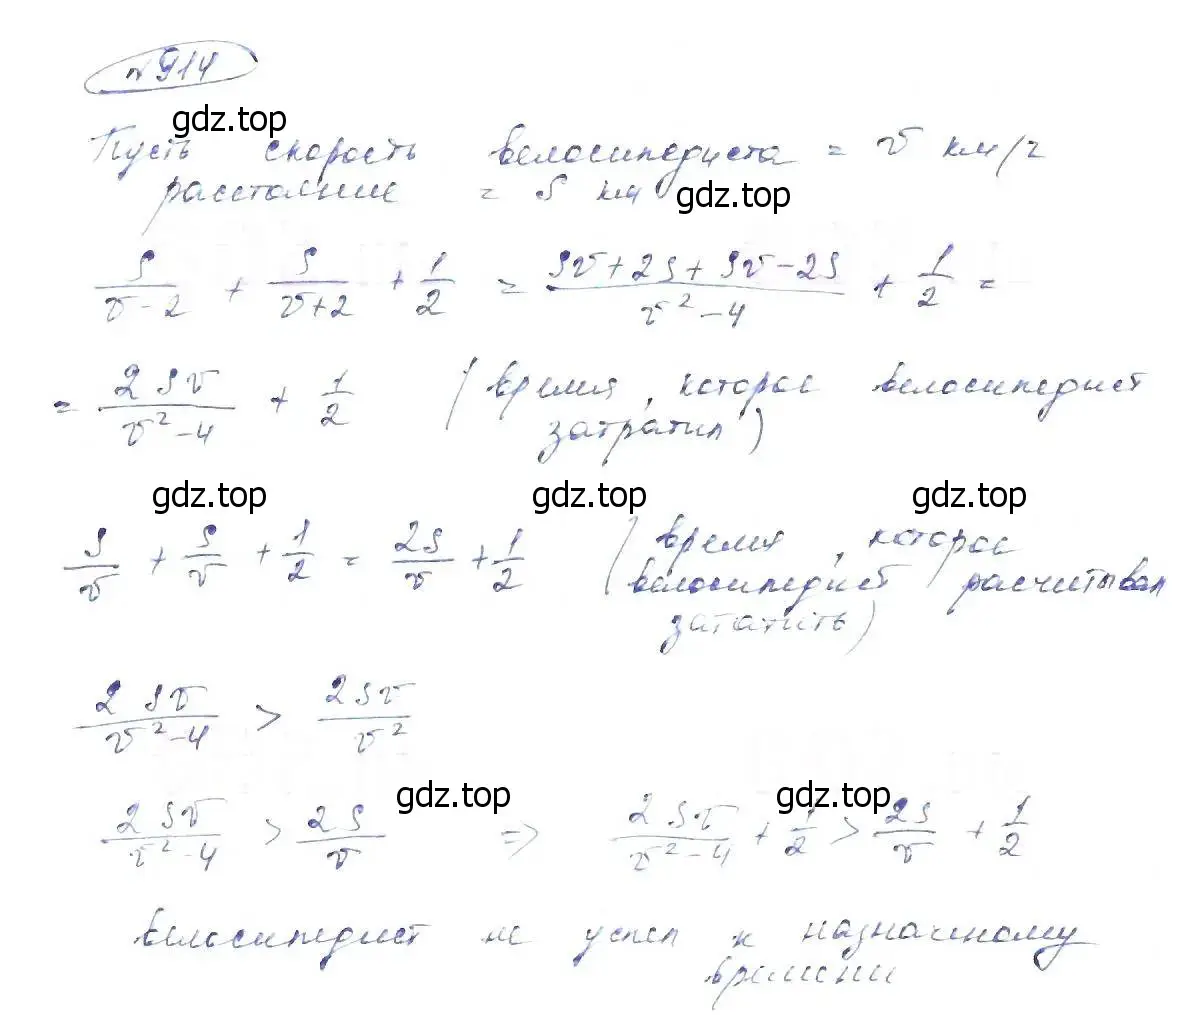 №914
gdz.top
Пусть скорость велосипедиста = v км/ч
расстояние = S км gdz.top
S/(v-2) + S/(v+2) + 1/2 = (Sv+2S+Sv-2S)/(v²-4) + 1/2 =
= 2Sv/(v²-4) + 1/2 (время, которое велосипедист
затратил)
gdz.top gdz.top gdz.top
S/v + S/v + 1/2 = 2S/v + 1/2 (время, которое
велосипедист расчитывал
зататить)
2Sv/(v²-4) > 2Sv/v²
gdz.top gdz.top
2Sv/(v²-4) > 2S/v => 2Sv/(v²-4) + 1/2 > 2S/v + 1/2
велосипедист не успел к назначенному
времени